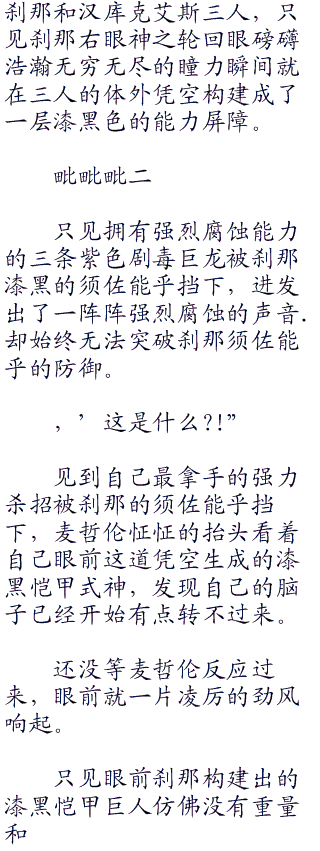 刹那和汉库克艾斯三人，只
见刹那右眼神之轮回眼磅礴
浩瀚无穷无尽的瞳力瞬间就
在三人的体外凭空构建成了
一层漆黑色的能力屏障。
毗毗毗二
只见拥有强烈腐蚀能力
的三条紫色剧毒巨龙被刹那
漆黑的须佐能乎挡下，迸发
出了一阵阵强烈腐蚀的声音.
却始终无法突破刹那须佐能
乎的防御。
，’这是什么?!”
见到自己最拿手的强力
杀招被刹那的须佐能乎挡
下，麦哲伦怔怔的抬头看着
自己眼前这道凭空生成的漆
黑恺甲式神，发现自己的脑
子已经开始有点转不过来。
还没等麦哲伦反应过
来，眼前就一片凌厉的劲风
响起。
只见眼前刹那构建出的
漆黑恺甲巨人仿佛没有重量
和